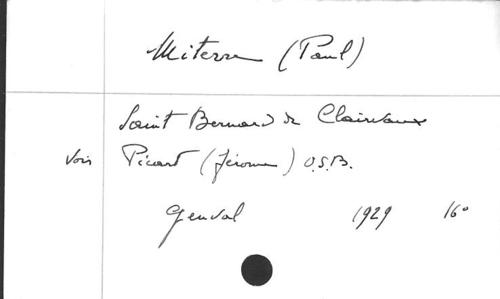 Miterre (Paul)
Saint Bernard de Clairvaux
Voir Picard (Jérome) O.S.B.
Genval 1929 16°